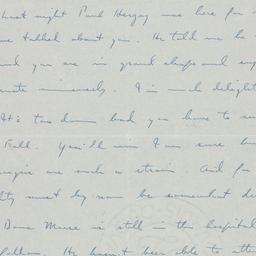 last night Paul was here for
we talked about you. He told me he
and you are in grand shape and
immensely. I'm much delight
It's too damn bad you have to
Fall. You'll win I'm sure but
such a strain and for
must by now be somewhat
Dave Muse is still in the hospital
He hasn't been able to